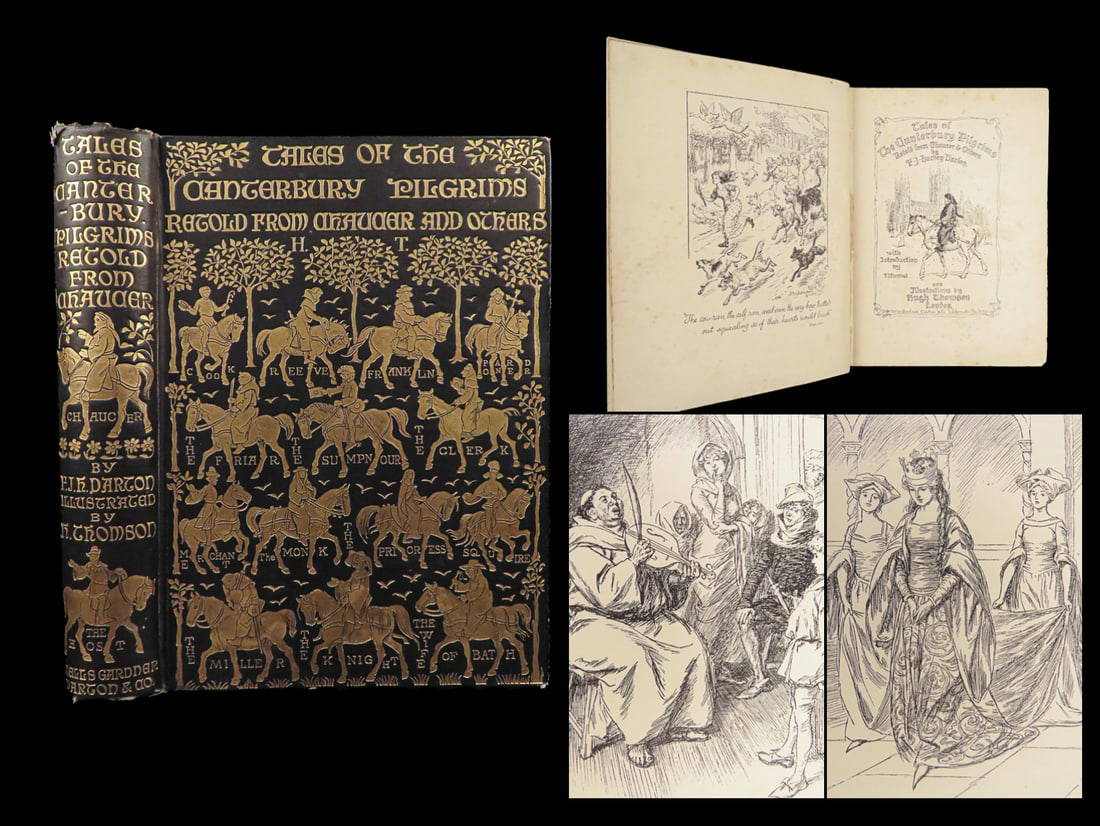 TALES
OF THE
CANTER
-BURY.
PILGRIMS
RETOLD
FROM
CHAUCER
CHAUCER
BY
F.J.H. DARTON
ILLUSTRATED
BY
H. THOMSON
THE
HOST
WELLS GARDNER
DARTON & CO.
TALES OF THE
CANTERBURY PILGRIMS
RETOLD FROM CHAUCER AND OTHERS
H. T.
COOK REEVE FRANKLN PARDONER
THE FRIAR THE SUMPNOUR THE CLERK
MERCHANT The MONK THE PRIORESS SQUIRE
THE MILLER THE KNIGHT THE WIFE OF BATH
The cow ran, the calf ran, and even the very hogs trotted
out squealing as if their hearts would break
Tales of
The Canterbury Pilgrims
Retold from Chaucer & Others
by
F. J. Harvey Darton
with
Introduction
by
F.J. Furnivall
and
Illustrations by
Hugh Thomson
London